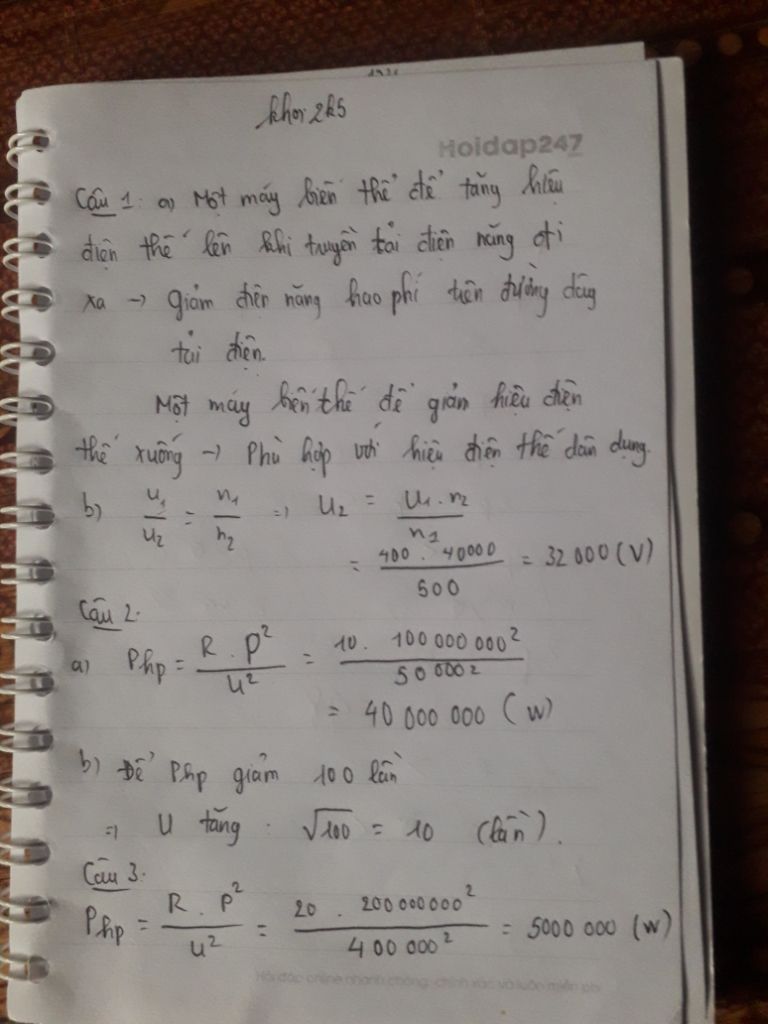 khoi2k5
Hoidap247
Câu 1: a) Một máy biến thế để tăng hiệu
điện thế lên khi truyền tải điện năng đi
xa → giảm điện năng hao phí trên đường dây
tải điện.
Một máy biến thế để giảm hiệu điện
thế xuống → Phù hợp với hiệu điện thế dân dụng.
b) U1/U2 = n1/n2 => U2 = U1.n2/n1
= 400.40000/500 = 32 000 (V)
Câu 2.
a) Php = R.P²/U² = 10.100 000 000²/50 000²
= 40 000 000 (W)
b) Để Php giảm 100 lần
=> U tăng: √100 = 10 (lần).
Câu 3.
Php = R.P²/U² = 20.200 000 000²/400 000² = 5000 000 (W)
Hỏi đáp online nhanh chóng, chính xác và luôn miễn phí